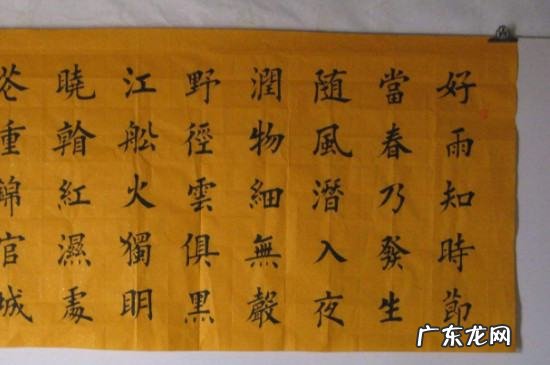 好雨知時節
當春乃發生
随風潛入夜
潤物細無聲
野徑雲俱黑
江船火獨眀
曉看紅濕處
花重錦官城
广东龙网